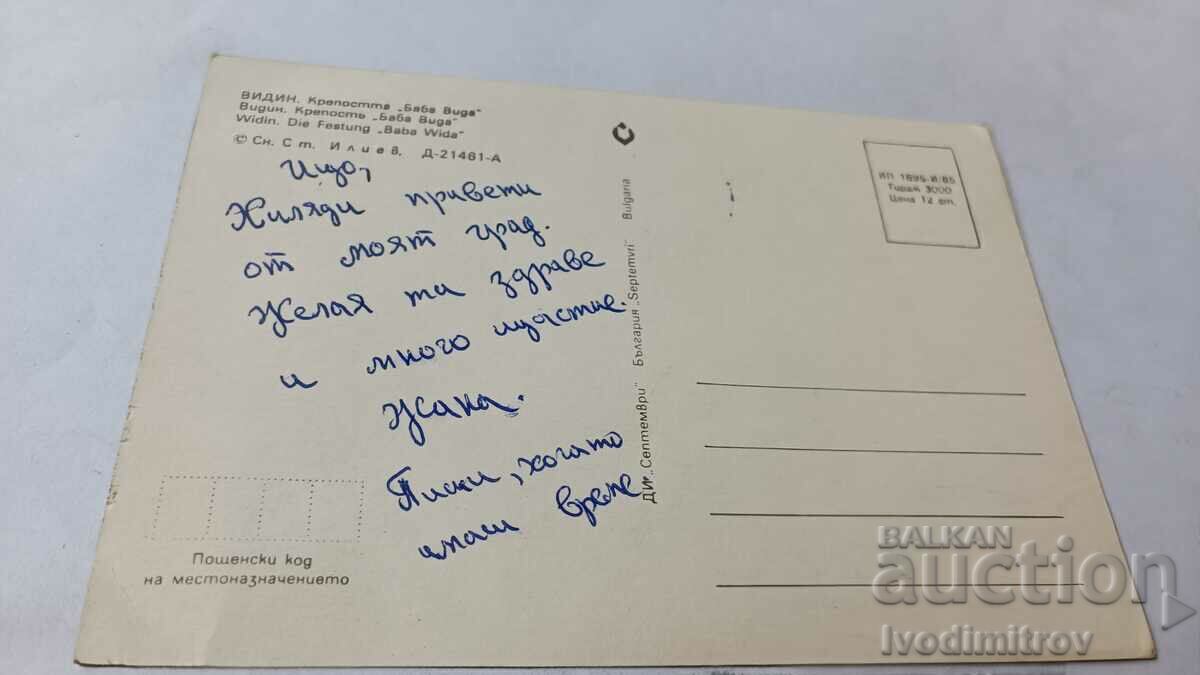 ВИДИН. Крепостта „Баба Вида"
Видин. Крепость „Баба Вида"
Widin. Die Festung „Baba Wida"
© Сн. Ст. Илиев, Д-21461-А
Ицо,
Хиляди привети
от моят град.
Желая ти здраве
и много щастие.
Жана.
Пиши, когато
имаш време
Пощенски код
на местоназначението
ДИ „Септември" България „Septemvri" Bulgaria
ИП 1895-И/85
Тираж 3000
Цена 12 ст.
BALKAN
auction
Ivodimitrov